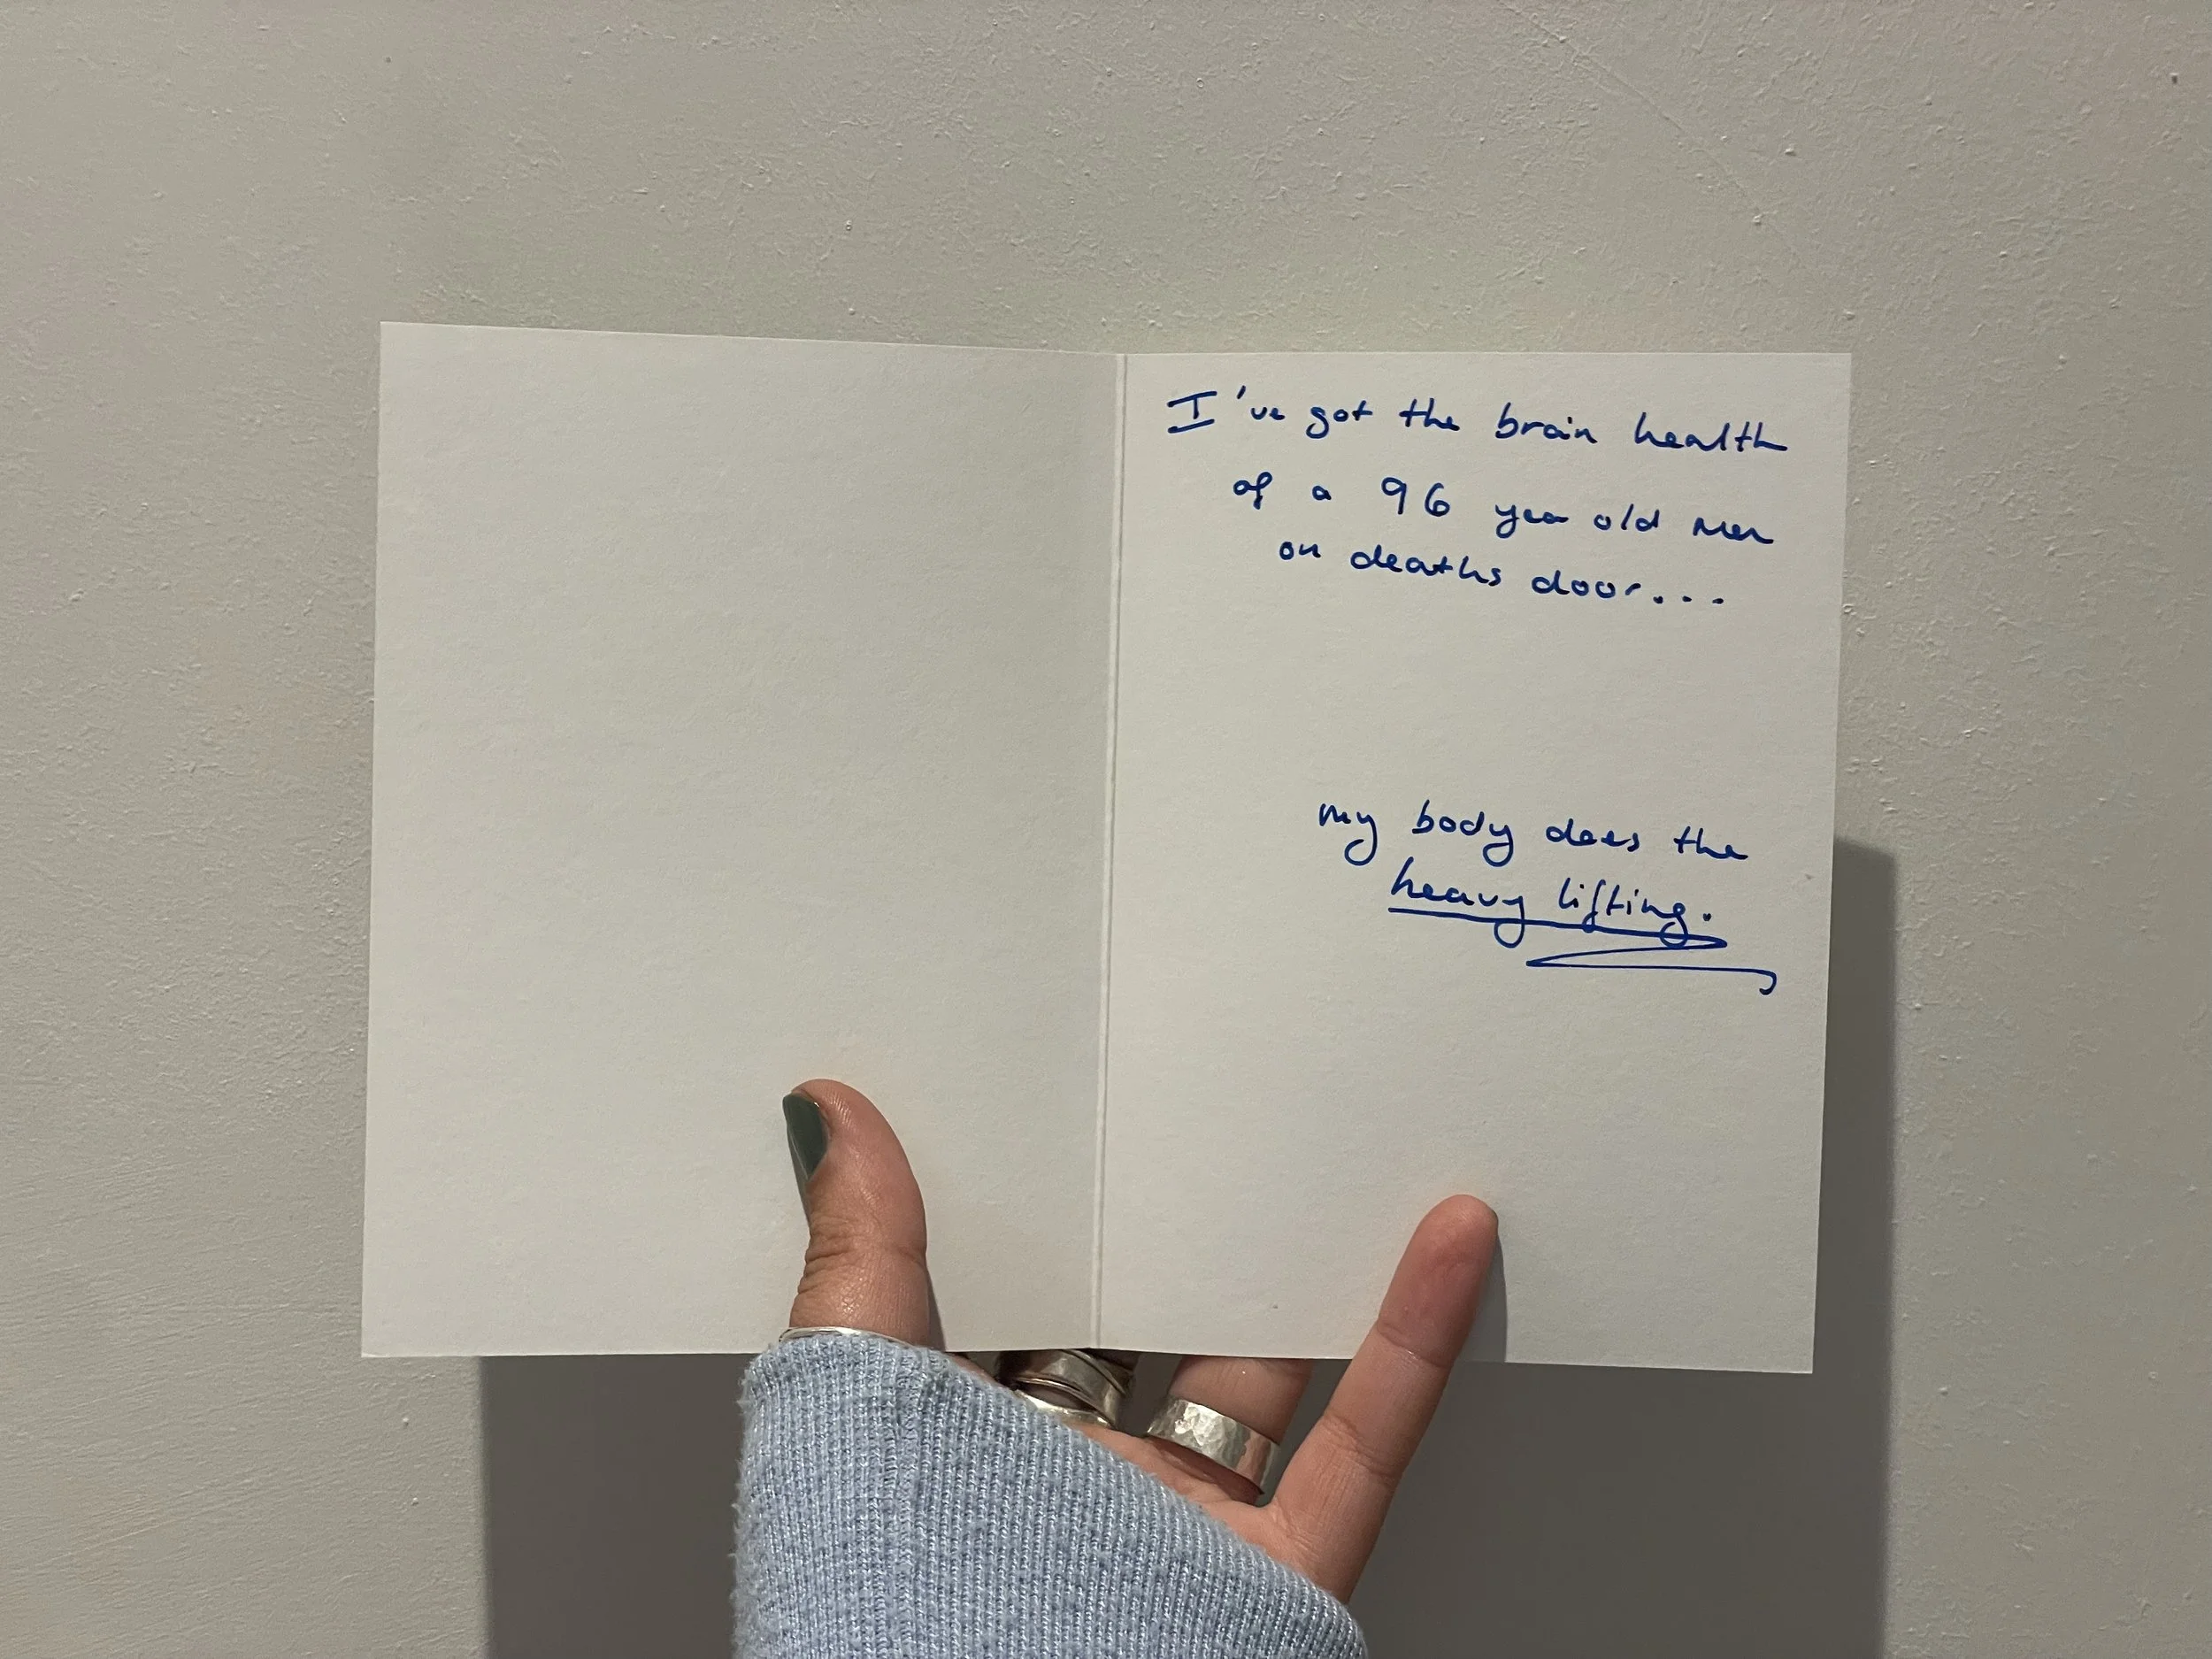 I've got the brain health
of a 96 year old man
on deaths door...
my body does the
heavy lifting.